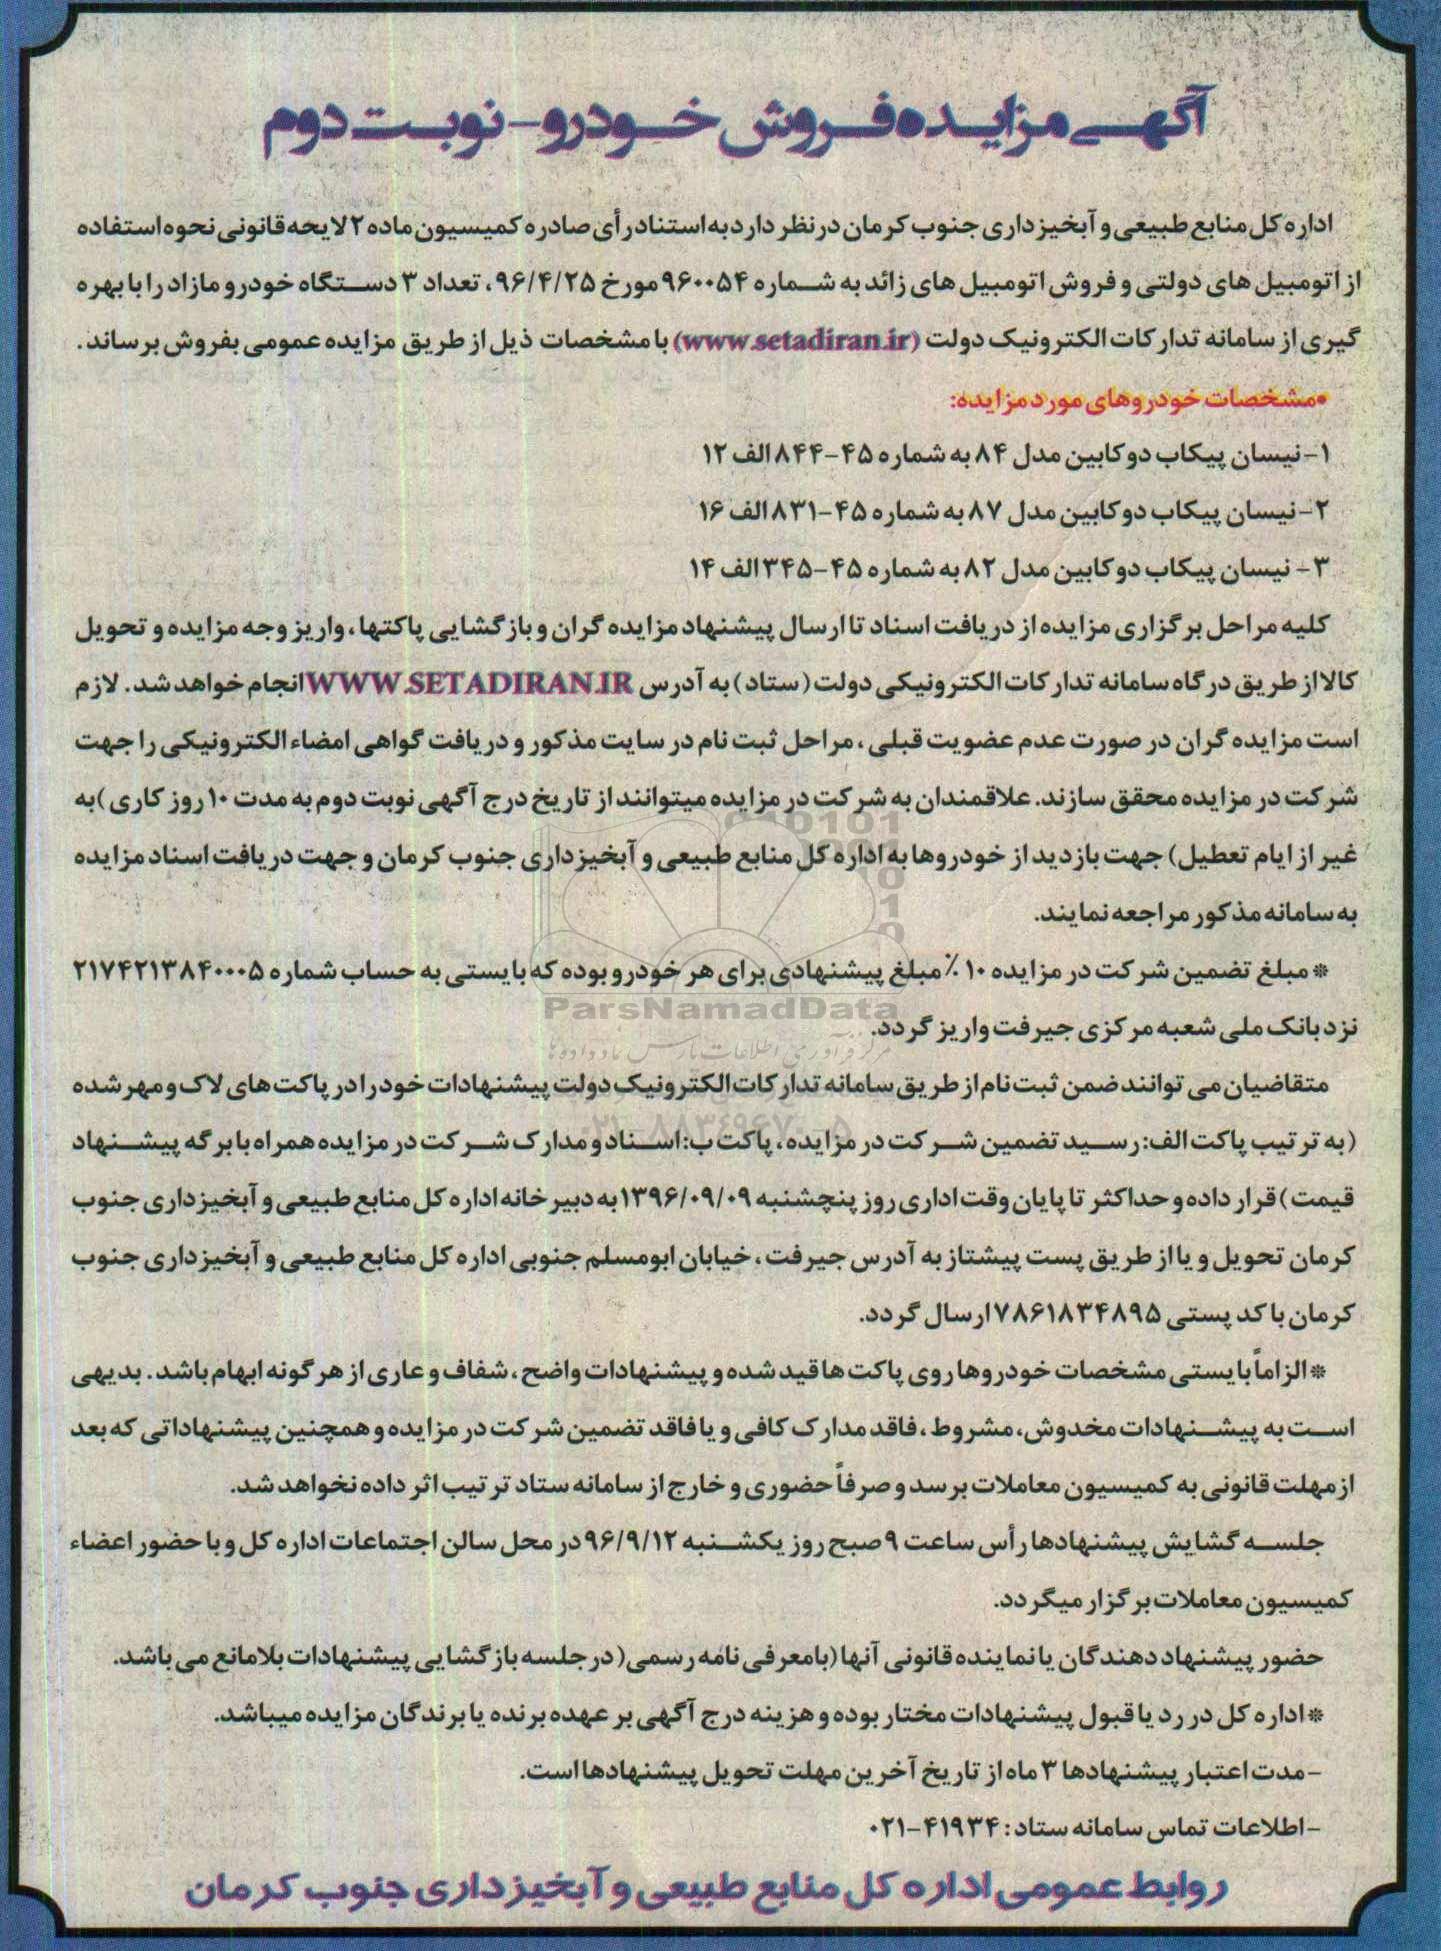 آگهی مزایده فروش خودرو - نوبت دوم
اداره کل منابع طبیعی و آبخیزداری جنوب کرمان در نظر دارد به استناد رأی صادره کمیسیون ماده ۲ لایحه قانونی نحوه استفاده
از اتومبیل های دولتی و فروش اتومبیل های زائد به شماره ۹۶۰۰۵۴ مورخ ۹۶/۴/۲۵، تعداد ۳ دستگاه خودرو مازاد را با بهره
گیری از سامانه تدارکات الکترونیک دولت (www.setadiran.ir) با مشخصات ذیل از طریق مزایده عمومی بفروش برساند.
•مشخصات خودروهای مورد مزایده:
۱- نیسان پیکاب دوکابین مدل ۸۴ به شماره ۴۵-۸۴۴ الف ۱۲
۲- نیسان پیکاب دوکابین مدل ۸۷ به شماره ۴۵-۸۳۱ الف ۱۶
۳- نیسان پیکاب دوکابین مدل ۸۲ به شماره ۴۵-۳۴۵ الف ۱۴
کلیه مراحل برگزاری مزایده از دریافت اسناد تا ارسال پیشنهاد مزایده گران و بازگشایی پاکتها، واریز وجه مزایده و تحویل
کالا از طریق درگاه سامانه تدارکات الکترونیکی دولت (ستاد) به آدرس WWW.SETADIRAN.IR انجام خواهد شد. لازم
است مزایده گران در صورت عدم عضویت قبلی، مراحل ثبت نام در سایت مذکور و دریافت گواهی امضاء الکترونیکی را جهت
شرکت در مزایده محقق سازند. علاقمندان به شرکت در مزایده میتوانند از تاریخ درج آگهی نوبت دوم به مدت ۱۰ روز کاری )به
غیر از ایام تعطیل) جهت بازدید از خودروها به اداره کل منابع طبیعی و آبخیزداری جنوب کرمان و جهت دریافت اسناد مزایده
به سامانه مذکور مراجعه نمایند.
* مبلغ تضمین شرکت در مزایده ۱۰٪ مبلغ پیشنهادی برای هر خودرو بوده که بایستی به حساب شماره ۲۱۷۴۲۱۳۸۴۰۰۰۵
نزد بانک ملی شعبه مرکزی جیرفت واریز گردد.
متقاضیان می توانند ضمن ثبت نام از طریق سامانه تدارکات الکترونیک دولت پیشنهادات خود را در پاکت های لاک و مهر شده
(به ترتیب پاکت الف: رسید تضمین شرکت در مزایده، پاکت ب: اسناد و مدارک شرکت در مزایده همراه با برگه پیشنهاد
قیمت) قرار داده و حداکثر تا پایان وقت اداری روز پنچشنبه ۱۳۹۶/۰۹/۰۹ به دبیرخانه اداره کل منابع طبیعی و آبخیزداری جنوب
کرمان تحویل و یا از طریق پست پیشتاز به آدرس جیرفت، خیابان ابومسلم جنوبی اداره کل منابع طبیعی و آبخیزداری جنوب
کرمان با کد پستی ۷۸۶۱۸۳۴۸۹۵ ارسال گردد.
* الزاماً بایستی مشخصات خودروها روی پاکت ها قید شده و پیشنهادات واضح، شفاف و عاری از هرگونه ابهام باشد. بدیهی
است به پیشنهادات مخدوش، مشروط، فاقد مدارک کافی و یا فاقد تضمین شرکت در مزایده و همچنین پیشنهاداتی که بعد
از مهلت قانونی به کمیسیون معاملات برسد و صرفاً حضوری و خارج از سامانه ستاد ترتیب اثر داده نخواهد شد.
جلسه گشایش پیشنهادها رأس ساعت ۹ صبح روز یکشنبه ۹۶/۹/۱۲ در محل سالن اجتماعات اداره کل و با حضور اعضاء
کمیسیون معاملات برگزار میگردد.
حضور پیشنهاد دهندگان یا نماینده قانونی آنها (بامعرفی نامه رسمی( در جلسه بازگشایی پیشنهادات بلامانع می باشد.
* اداره کل در رد یا قبول پیشنهادات مختار بوده و هزینه درج آگهی بر عهده برنده یا برندگان مزایده میباشد.
- مدت اعتبار پیشنهادها ۳ ماه از تاریخ آخرین مهلت تحویل پیشنهادها است.
- اطلاعات تماس سامانه ستاد: ۴۱۹۳۴-۰۲۱
روابط عمومی اداره کل منابع طبیعی و آبخیزداری جنوب کرمان
ParsNamadData